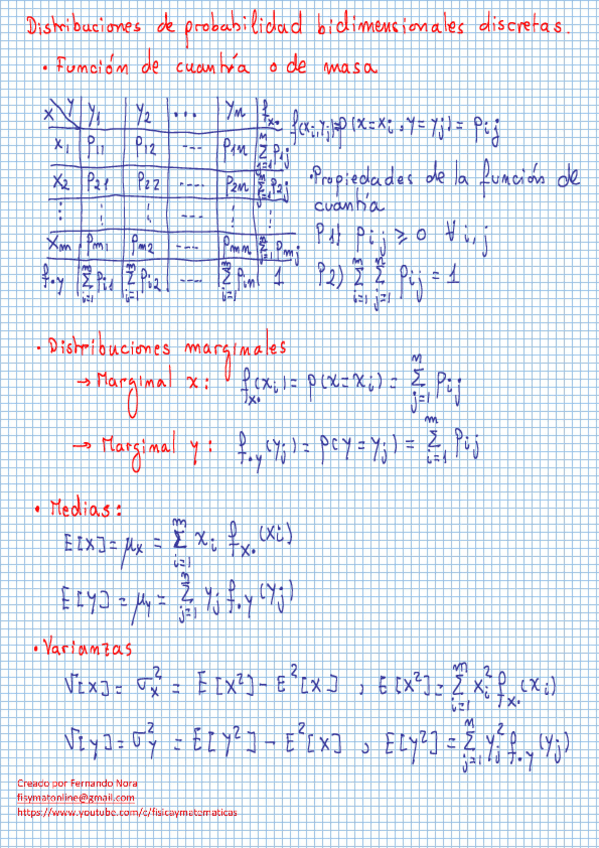 Distribuciones de probabilidad bidimensionales discretas.
• Función de cuantía o de masa
x\y | y1 | y2 | ... | yn | fx•
x1 | p11 | p12 | ---- | p1n | Σ_{j=1}^{n} p1j
x2 | p21 | p22 | ---- | p2n | Σ_{j=1}^{n} p2j
⋮ | ⋮ | ⋮ | ---- | ⋮ | ⋮
xm | pm1 | pm2 | ---- | pmn | Σ_{j=1}^{n} pmj
f•y | Σ_{i=1}^{m} pi1 | Σ_{i=1}^{m} pi2 | ---- | Σ_{i=1}^{m} pin | 1
f(xi,yj)=p(x=xi, y=yj)= pij
• Propiedades de la función de
cuantía
P1) pij ≥ 0 ∀ i,j
P2) Σ_{i=1}^{m} Σ_{j=1}^{n} pij = 1
• Distribuciones marginales
→ Marginal x: fx•(xi) = p(x=xi) = Σ_{j=1}^{n} pij
→ Marginal y: f•y(yj) = p(y=yj) = Σ_{i=1}^{m} pij
• Medias:
E[x] = μx = Σ_{i=1}^{m} xi fx•(xi)
E[y] = μy = Σ_{j=1}^{n} yj f•y(yj)
• Varianzas
V[x] = σx² = E[x²] - E²[x] , E[x²] = Σ_{i=1}^{m} xi² fx•(xi)
V[y] = σy² = E[y²] - E²[x] , E[y²] = Σ_{j=1}^{n} yj² f•y(yj)
Creado por Fernando Nora
fisymatonline@gmail.com
https://www.youtube.com/c/fisicaymatematicas